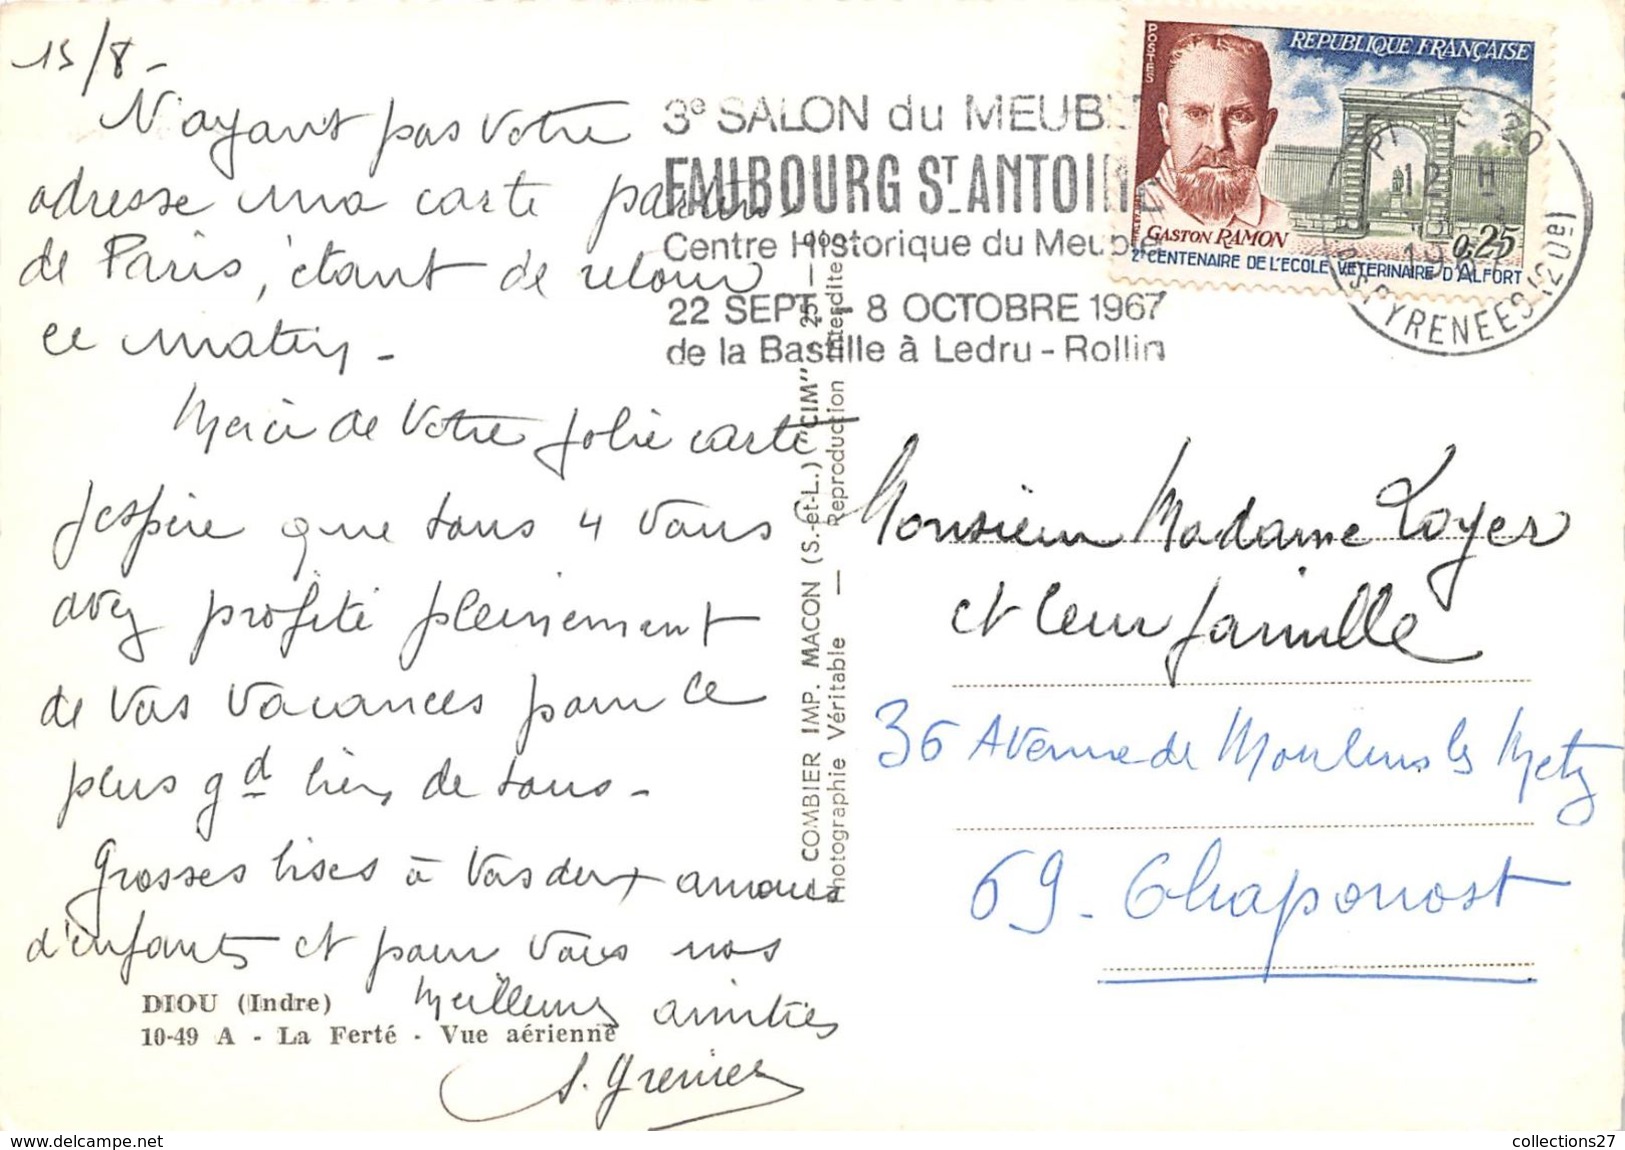 15/8 -
N'ayant pas votre
adresse ma carte partira
de Paris, étant de retour
ce matin -
Merci de votre jolie carte
J'espère que tous 4 vous
avez profité pleinement
de vos vacances pour le
plus gd bien de tous -
Grosses bises à vos deux amours
d'enfants et pour vous nos
meilleures amitiés
S. Grenier
DIOU (Indre)
10-49 A - La Ferté - Vue aérienne
COMBIER IMP. MACON (S.-et-L.) "CIM"
Photographie Véritable — Reproduction interdite
3e SALON du MEUBLE
FAUBOURG ST ANTOINE
Centre Historique du Meuble
22 SEPT - 8 OCTOBRE 1967
de la Bastille à Ledru-Rollin
POSTES
REPUBLIQUE FRANÇAISE
GASTON RAMON
0,25
2e CENTENAIRE DE L'ECOLE VETERINAIRE D'ALFORT
12 H
PYRENEES (20e)
Monsieur Madame Loyer
et leur famille
36 Avenue de Moulins les Metz
69 - Chaponost
collections27